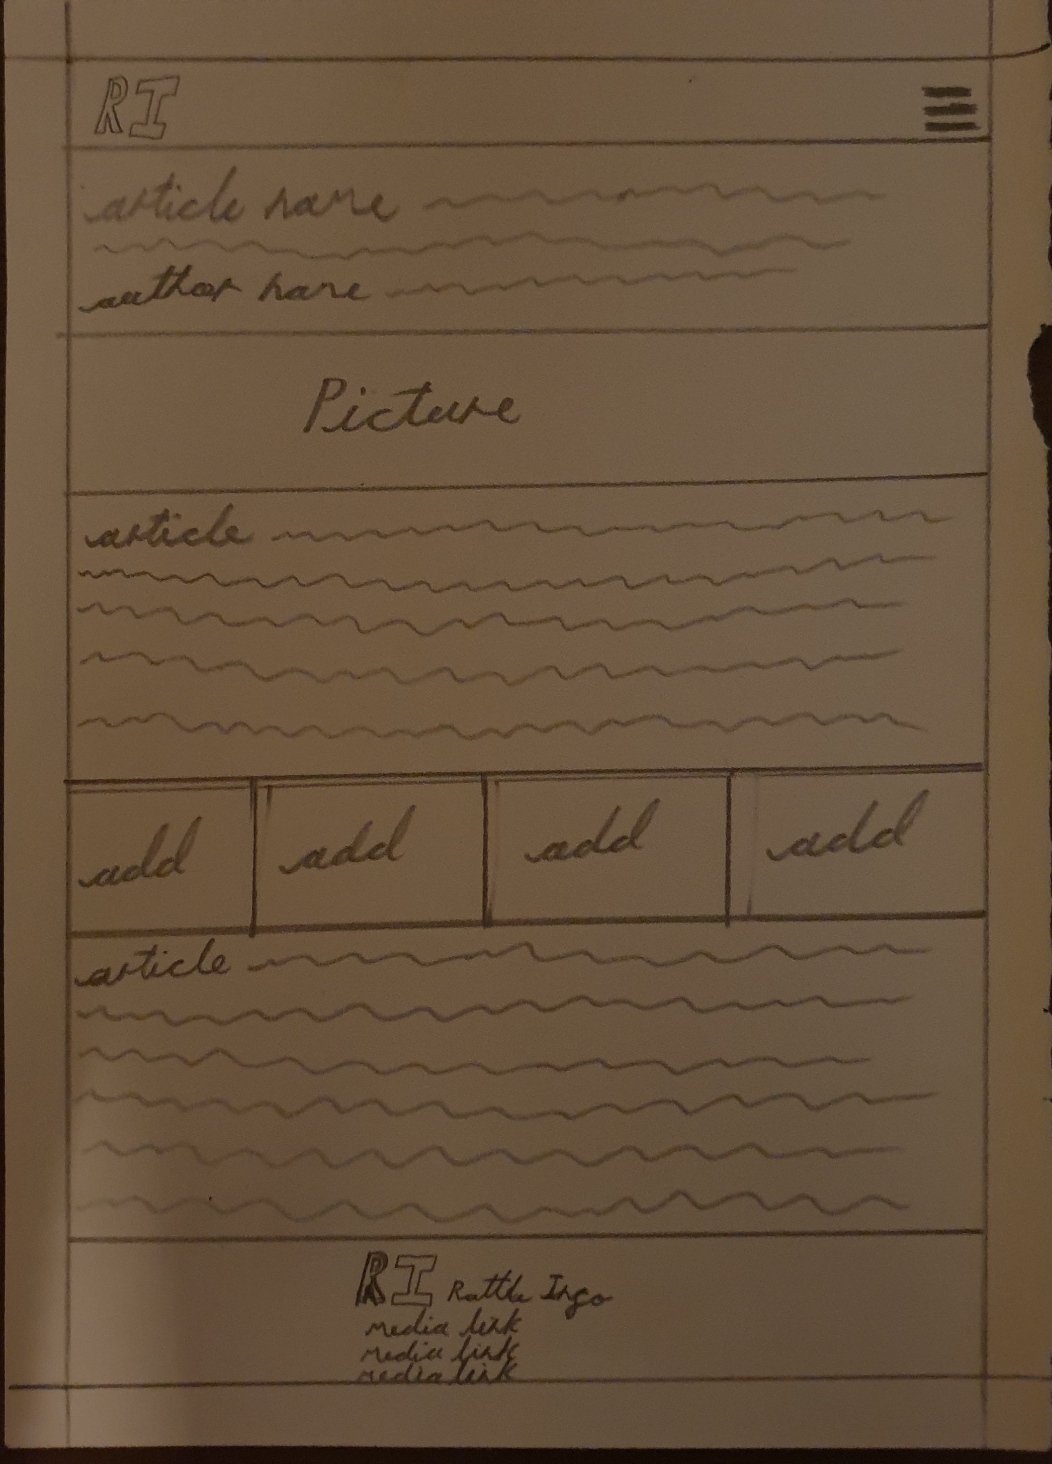 RI
article name
author name
Picture
article
add add add add
article
RI Rattle Ingo
media link
media link
media link